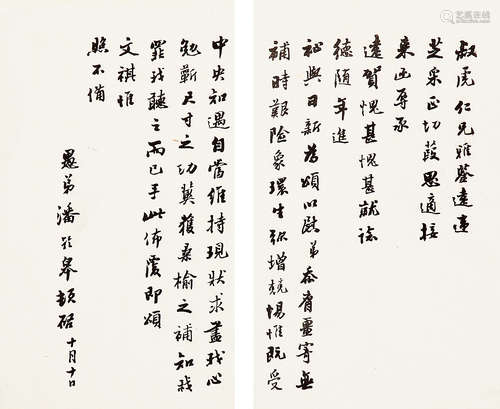 叔虎仁兄雅鉴远违
芝采正切葭思适接
来函辱承
远贺愧甚愧甚就谂
德随年进
祉与日新为颂以慰弟忝膺疆寄无
补时艰险象环生弥增兢惕惟既受
中央知遇自当维持现状求尽我心
勉蕲尺寸之功冀获桑榆之补知我
罪我听之而已手此佈覆即颂
文祺惟
照不备
愚弟潘龄皋顿启 十月十日